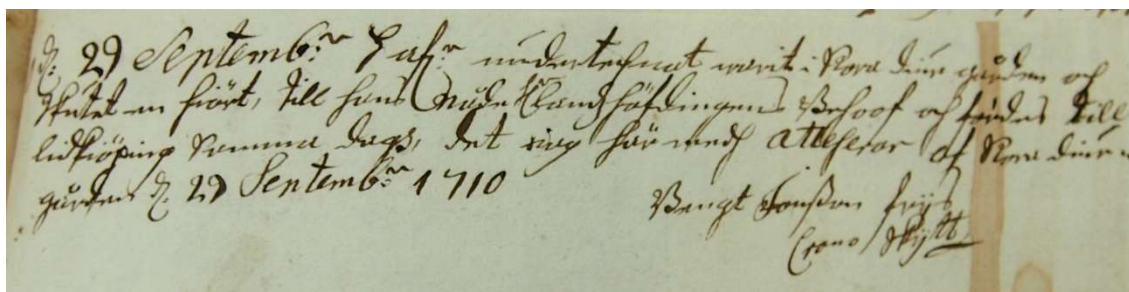 d: 29 Septemb:r hafr undertechnat warit i Kora diur gården och
skutet en hiort, till hans Nåde H Landshöfdingens Behoof och föides till
lidkiöping samma dags, det iag här med Attesterar af Kora diur
gården d: 29 Septemb:r 1710
Bengt Jonßon frijs
Crono Skytt